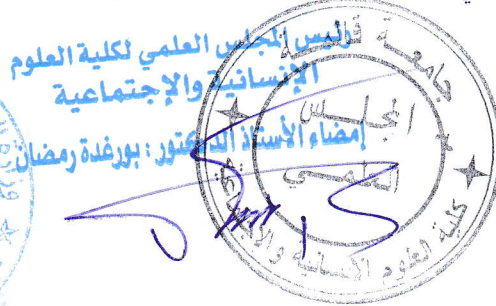 رئيس المجلس العلمي لكلية العلوم
الإنسانية والإجتماعية
إمضاء الأستاذ الدكتور : بورغدة رمضان
جامعة قالمة
المجلس
العلمي
كلية العلوم الإنسانية والاجتماعية